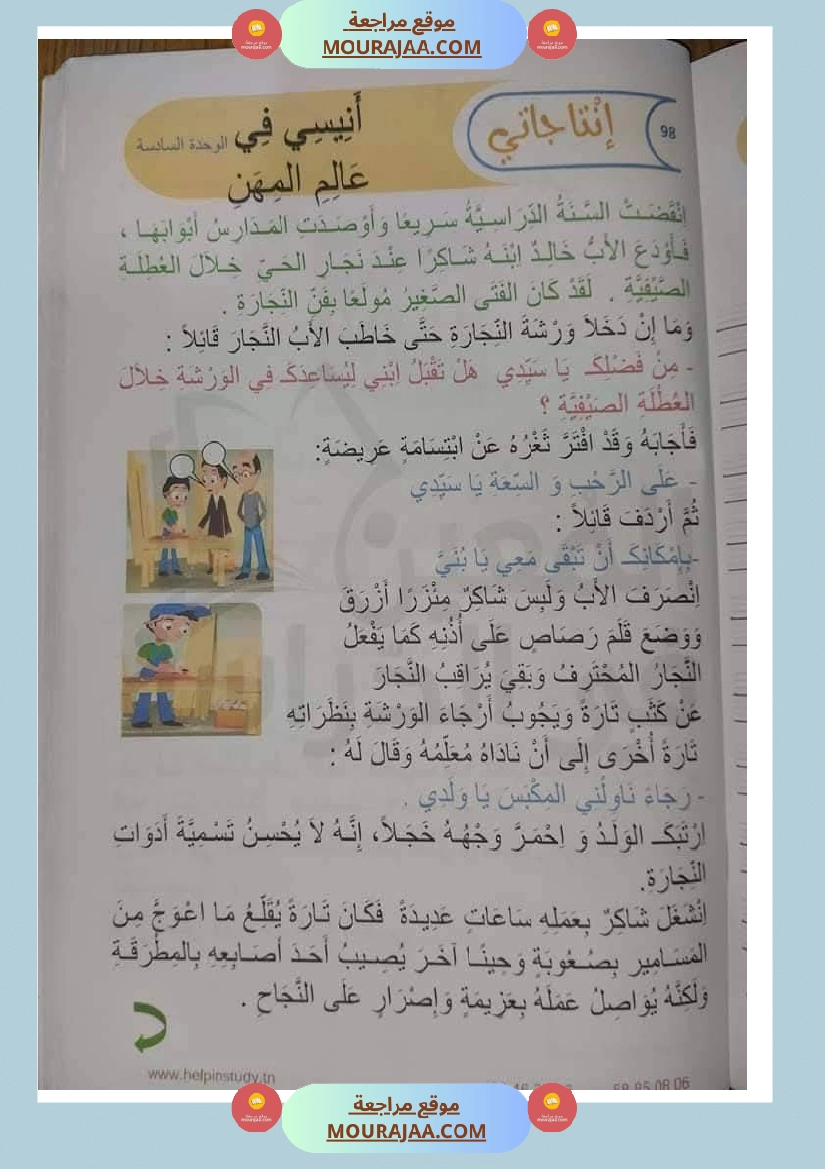 موقع مراجعة
MOURAJAA.COM
98
إِنْتَاجَاتِي
أَنِيسِي فِي
الوحدة السادسة
عَالِمِ المِهَنِ
اِنْقَضَتْ السَّنَةُ الدِّرَاسِيَّةُ سَرِيعًا وَأَوْصَدَتِ المَدَارِسُ أَبْوَابَهَا ،
فَأَوْدَعَ الأَبُ خَالِدٌ اِبْنَهُ شَاكِرًا عِنْدَ نَجَارِ الحَيِّ خِلاَلَ العُطْلَةِ
الصَّيْفِيَّةِ . لَقَدْ كَانَ الفَتَى الصَّغِيرُ مُولَعًا بِفَنِّ النِّجَارَةِ .
وَمَا إِنْ دَخَلاَ وَرْشَةَ النِّجَارَةِ حَتَّى خَاطَبَ الأَبُ النَّجَارَ قَائِلاً :
- مِنْ فَضْلِكَ يَا سَيِّدِي هَلْ تَقْبَلُ اِبْنِي لِيُسَاعِدَكَ فِي الوَرْشَةِ خِلاَلَ
العُطْلَةِ الصَيْفِيَّةِ ؟
فَأَجَابَهُ وَقَدْ افْتَرَّ ثَغْرُهُ عَنْ ابْتِسَامَةٍ عَرِيضَةٍ:
- عَلَى الرَّحْبِ وَ السِّعَةِ يَا سَيِّدِي
ثُمَّ أَرْدَفَ قَائِلاً :
-بِإِمْكَانِكَ أَنْ تَبْقَى مَعِي يَا بُنَيَّ
اِنْصَرَفَ الأَبُ وَلَبِسَ شَاكِرٌ مِئْزَرًا أَزْرَقَ
وَوَضَعَ قَلَمَ رَصَاصٍ عَلَى أُذْنِهِ كَمَا يَفْعَلُ
النَّجَارُ المُحْتَرِفُ وَبَقِيَ يُرَاقِبُ النَّجَارَ
عَنْ كَثْبٍ تَارَةً وَيَجُوبُ أَرْجَاءَ الوَرْشَةِ بِنَظَرَاتِهِ
تَارَةً أُخْرَى إِلَى أَنْ نَادَاهُ مُعَلِّمُهُ وَقَالَ لَهُ :
- رَجَاءً نَاوِلْنِي المِكْبَسَ يَا وَلَدِي .
اِرْتَبَكَ الوَلَدُ وَ اِحْمَرَّ وَجْهُهُ خَجَلاً، إِنَّهُ لاَ يُحْسِنُ تَسْمِيَّةَ أَدَوَاتِ
النِّجَارَةِ.
اِنْشَغَلَ شَاكِرٌ بِعَمَلِهِ سَاعَاتٍ عَدِيدَةً فَكَانَ تَارَةً يُقَلِّعُ مَا اعْوَجَّ مِنَ
المَسَامِيرِ بِصُعُوبَةٍ وَحِينًا آخَرَ يُصِيبُ أَحَدَ أَصَابِعِهِ بِالمِطْرَقَةِ
وَلَكِنَّهُ يُوَاصِلُ عَمَلَهُ بِعَزِيمَةٍ وَإِصْرَارٍ عَلَى النَّجَاحِ .
www.helpinstudy.tn
موقع مراجعة
MOURAJAA.COM